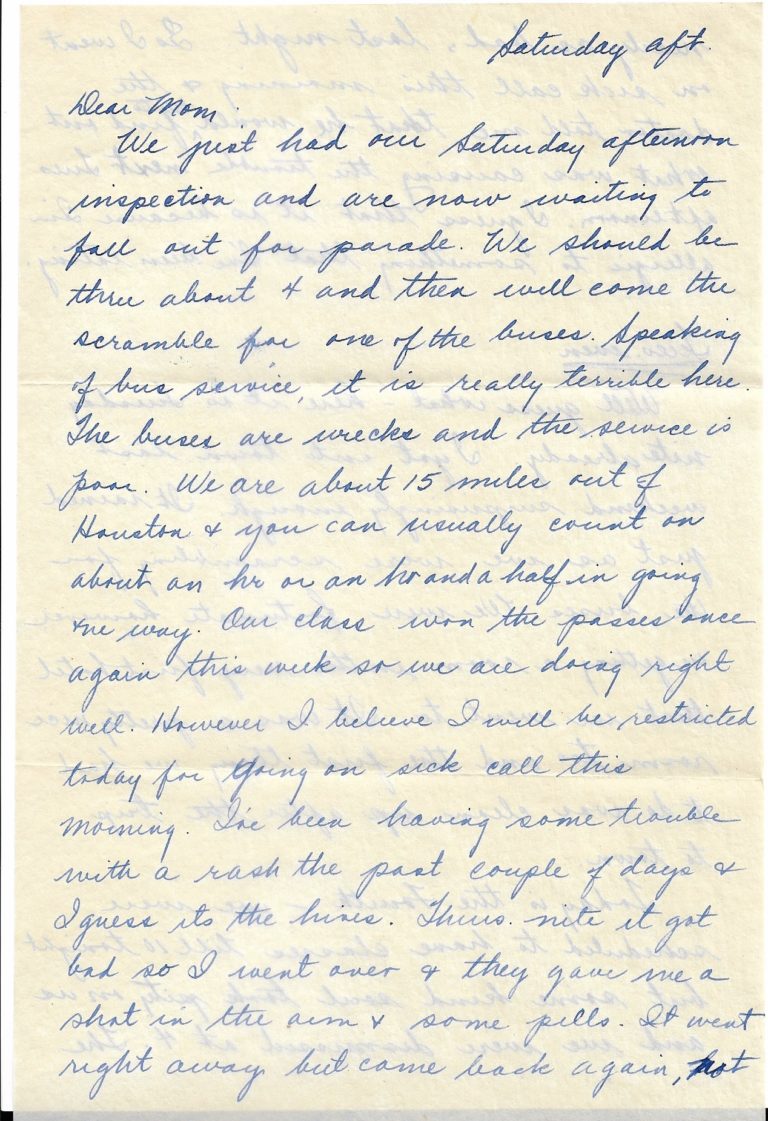 Saturday aft.
Dear Mom,
We just had our Saturday afternoon
inspection and are now waiting to
fall out for parade. We should be
thru about 4 and then will come the
scramble for one of the buses. Speaking
of bus service, it is really terrible here.
The buses are wrecks and the service is
poor. We are about 15 miles out of
Houston & you can usually count on
about an hr or an hr and a half in going
one way. Our class won the passes once
again this week so we are doing right
well. However I believe I will be restricted
today for going on sick call this
morning. I've been having some trouble
with a rash the past couple of days &
I guess its the hives. Thurs. nite it got
bad so I went over & they gave me a
shot in the arm & some pills. It went
right away but come back again, not